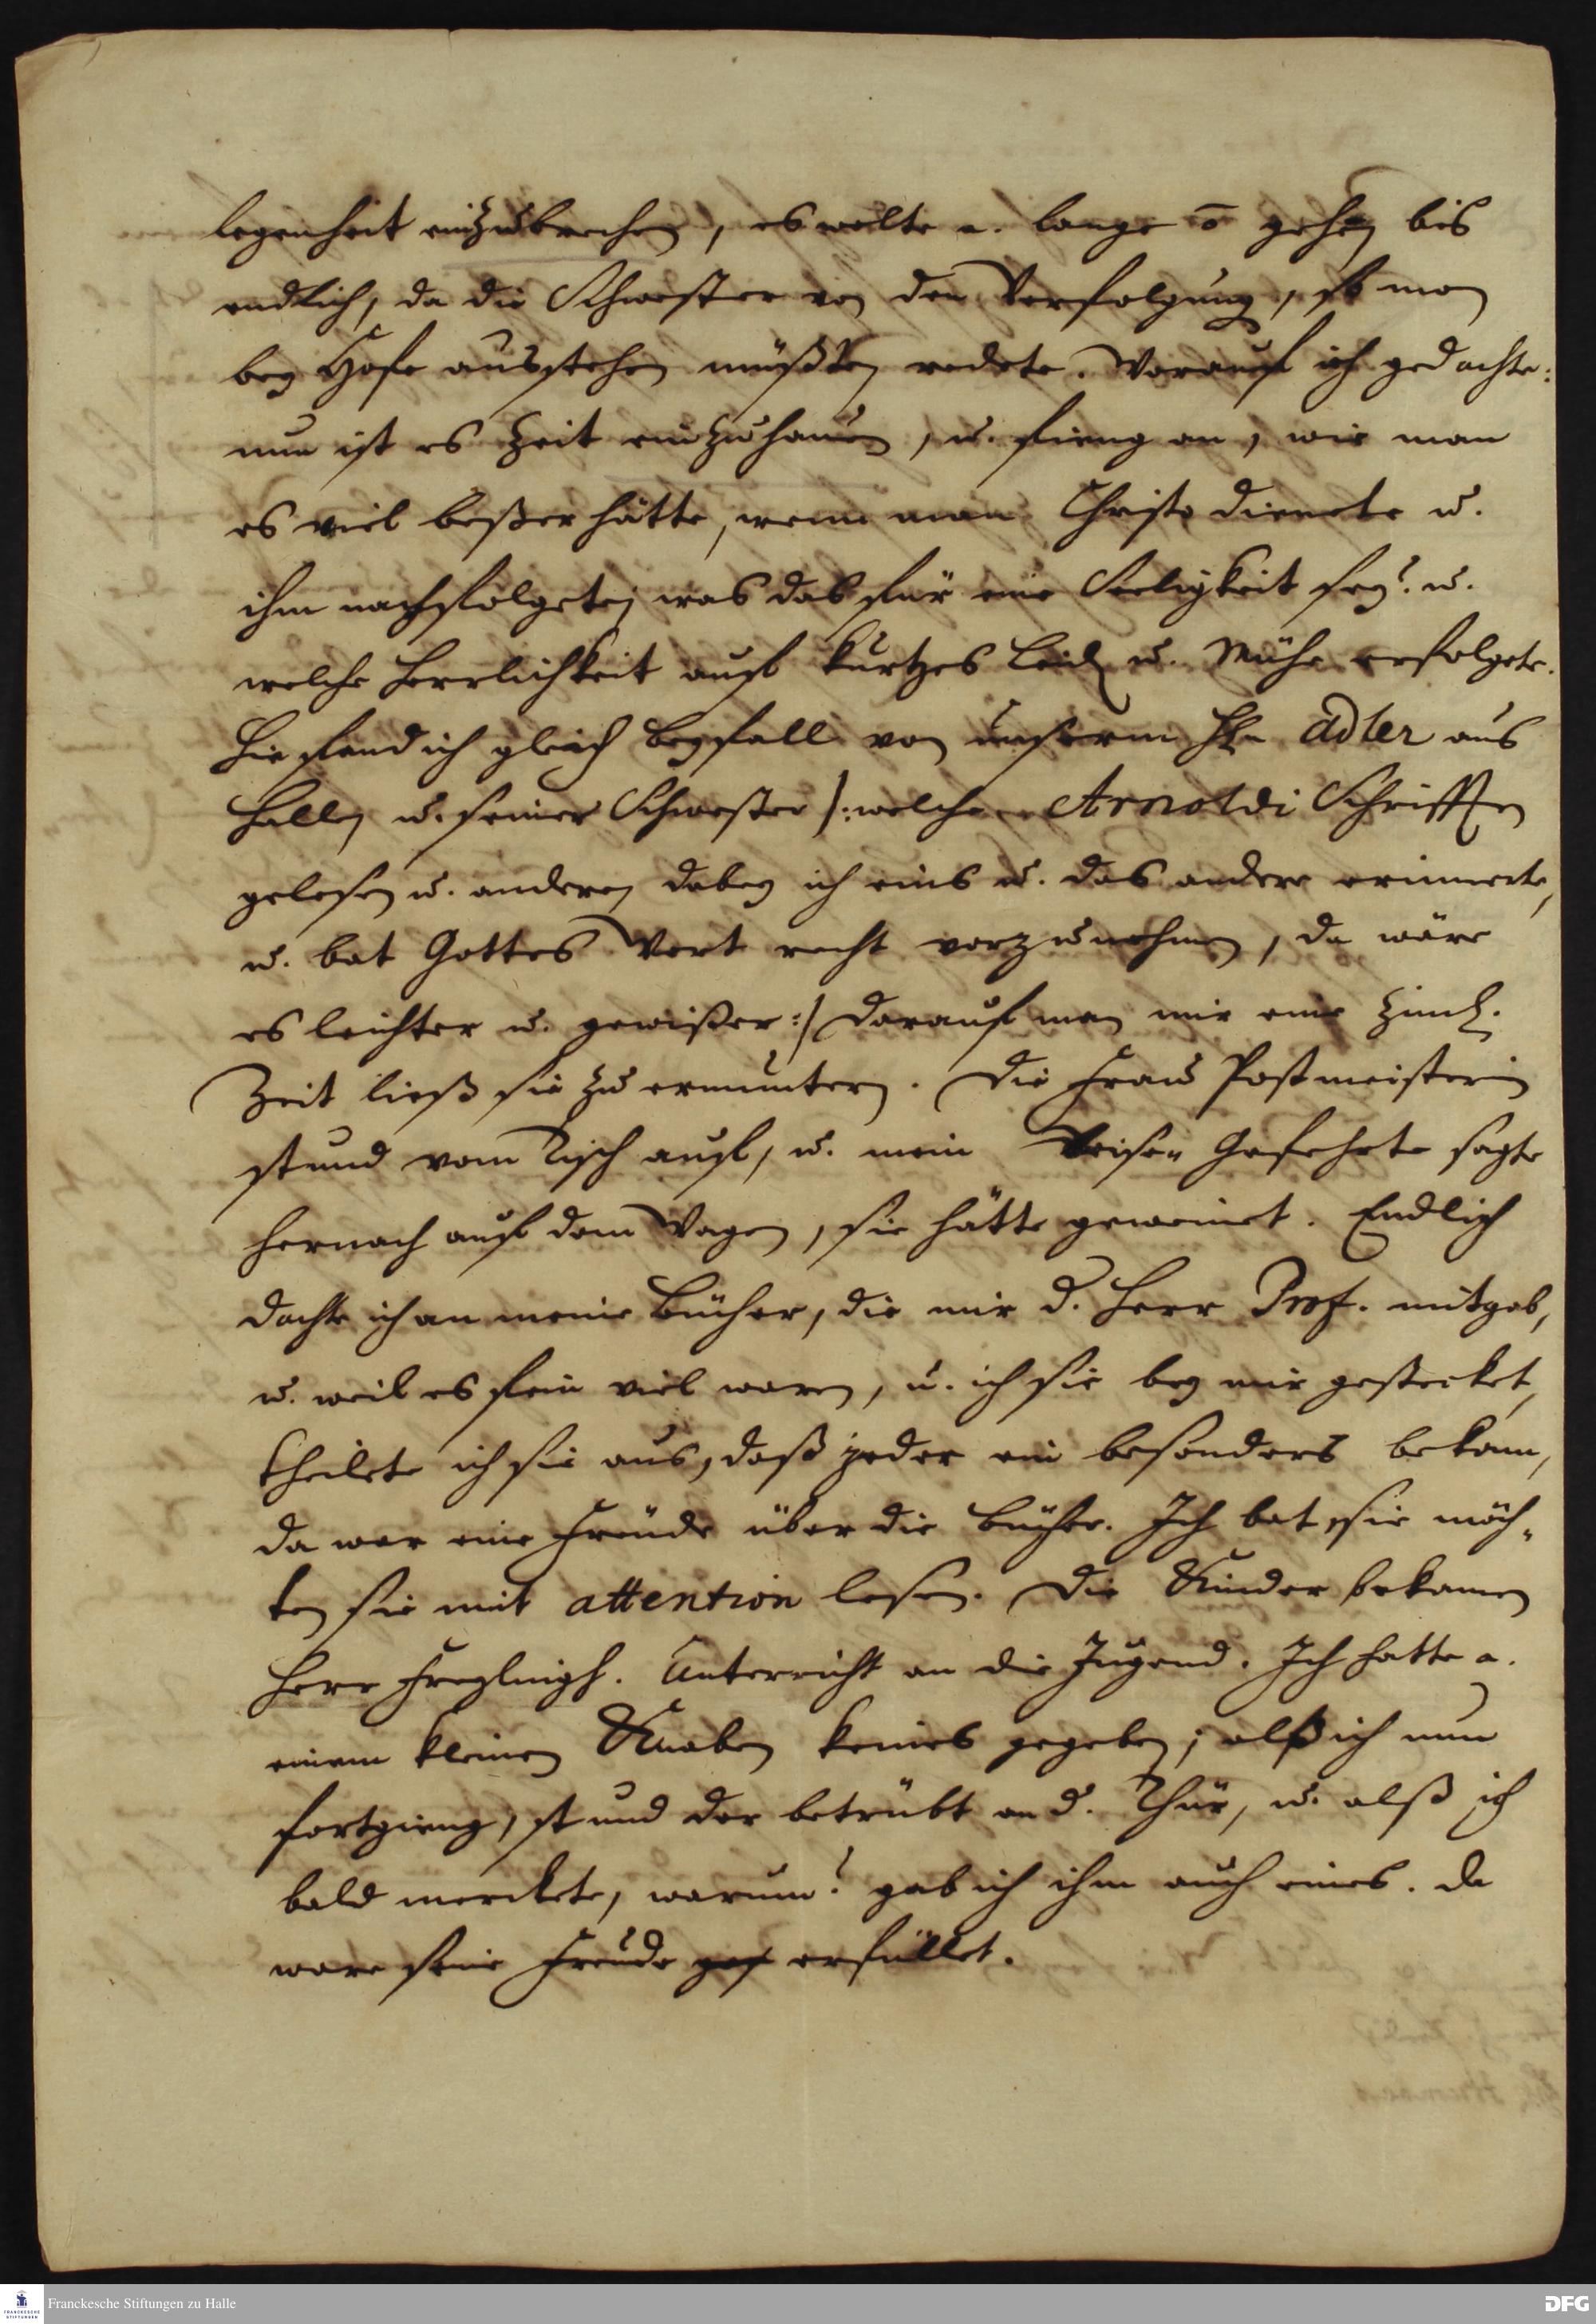 legenheit einzubrechen, es wolte a. lange o gehen bis
endlich, da die Schwester von den Verfolgung, so man
bey Hofe ausstehen müßten redete. Worauf ich gedachte:
nun ist es Zeit einzuhauen, u. fieng an, wie man
es viel beßer hätte, wenn man Christo dienete u.
ihm nachfolgete, was das für eine Seeligkeit sey? u.
welche Herrlichkeit auf kurtzes Leid u. Mühe erfolgete.
Hie fand ich gleich Beyfall von unserm Hn Adler aus
Halle, u. seiner Schwester /: welche Arnoldi Schrifften
gelesen u. andere, dabey ich eins u. das andere erinnerte,
u. bat Gottes Wort recht vorzunehmen, da wäre
es leichter u. gewißer :/ Darauf man mir eine ziml.
Zeit ließ sie zu ermuntern. Die Frau Postmeisterin
stund vom Tisch auf, u. mein Reise-Gefehrte sagte
hernach auf dem Wagen, sie hätte geweinet. Endlich
dachte ich an meine Bücher, die mir d. Herr Prof. mitgab,
u. weil es fein viel waren, u. ich sie bey mir gestecket,
theilete ich sie aus, daß jeder ein besonders bekam,
da war eine Freude über die Bücher. Ich bat, sie möch-
ten sie mit attention lesen. Die Kinder bekamen
Herr Freylingh. Unterricht an die Jugend. Ich hatte a.
einem kleinen Knaben keines gegeben; alß ich nun
fortgieng, stund der betrübt an d. Thür, u. alß ich
bald merckete, warum? gab ich ihm auch eines. Da
ware seine Freude erfüllet.
Franckesche Stiftungen zu Halle
DFG